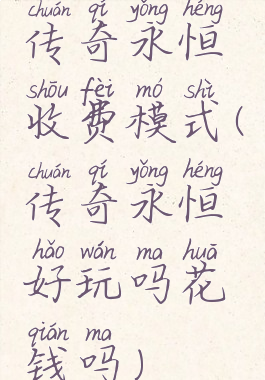 chuán qí yǒng héng
传奇永恒
shōu fèi mó shì
收费模式(
chuán qí yǒng héng
传奇永恒
hǎo wán ma huā
好玩吗花
qián ma
钱吗)